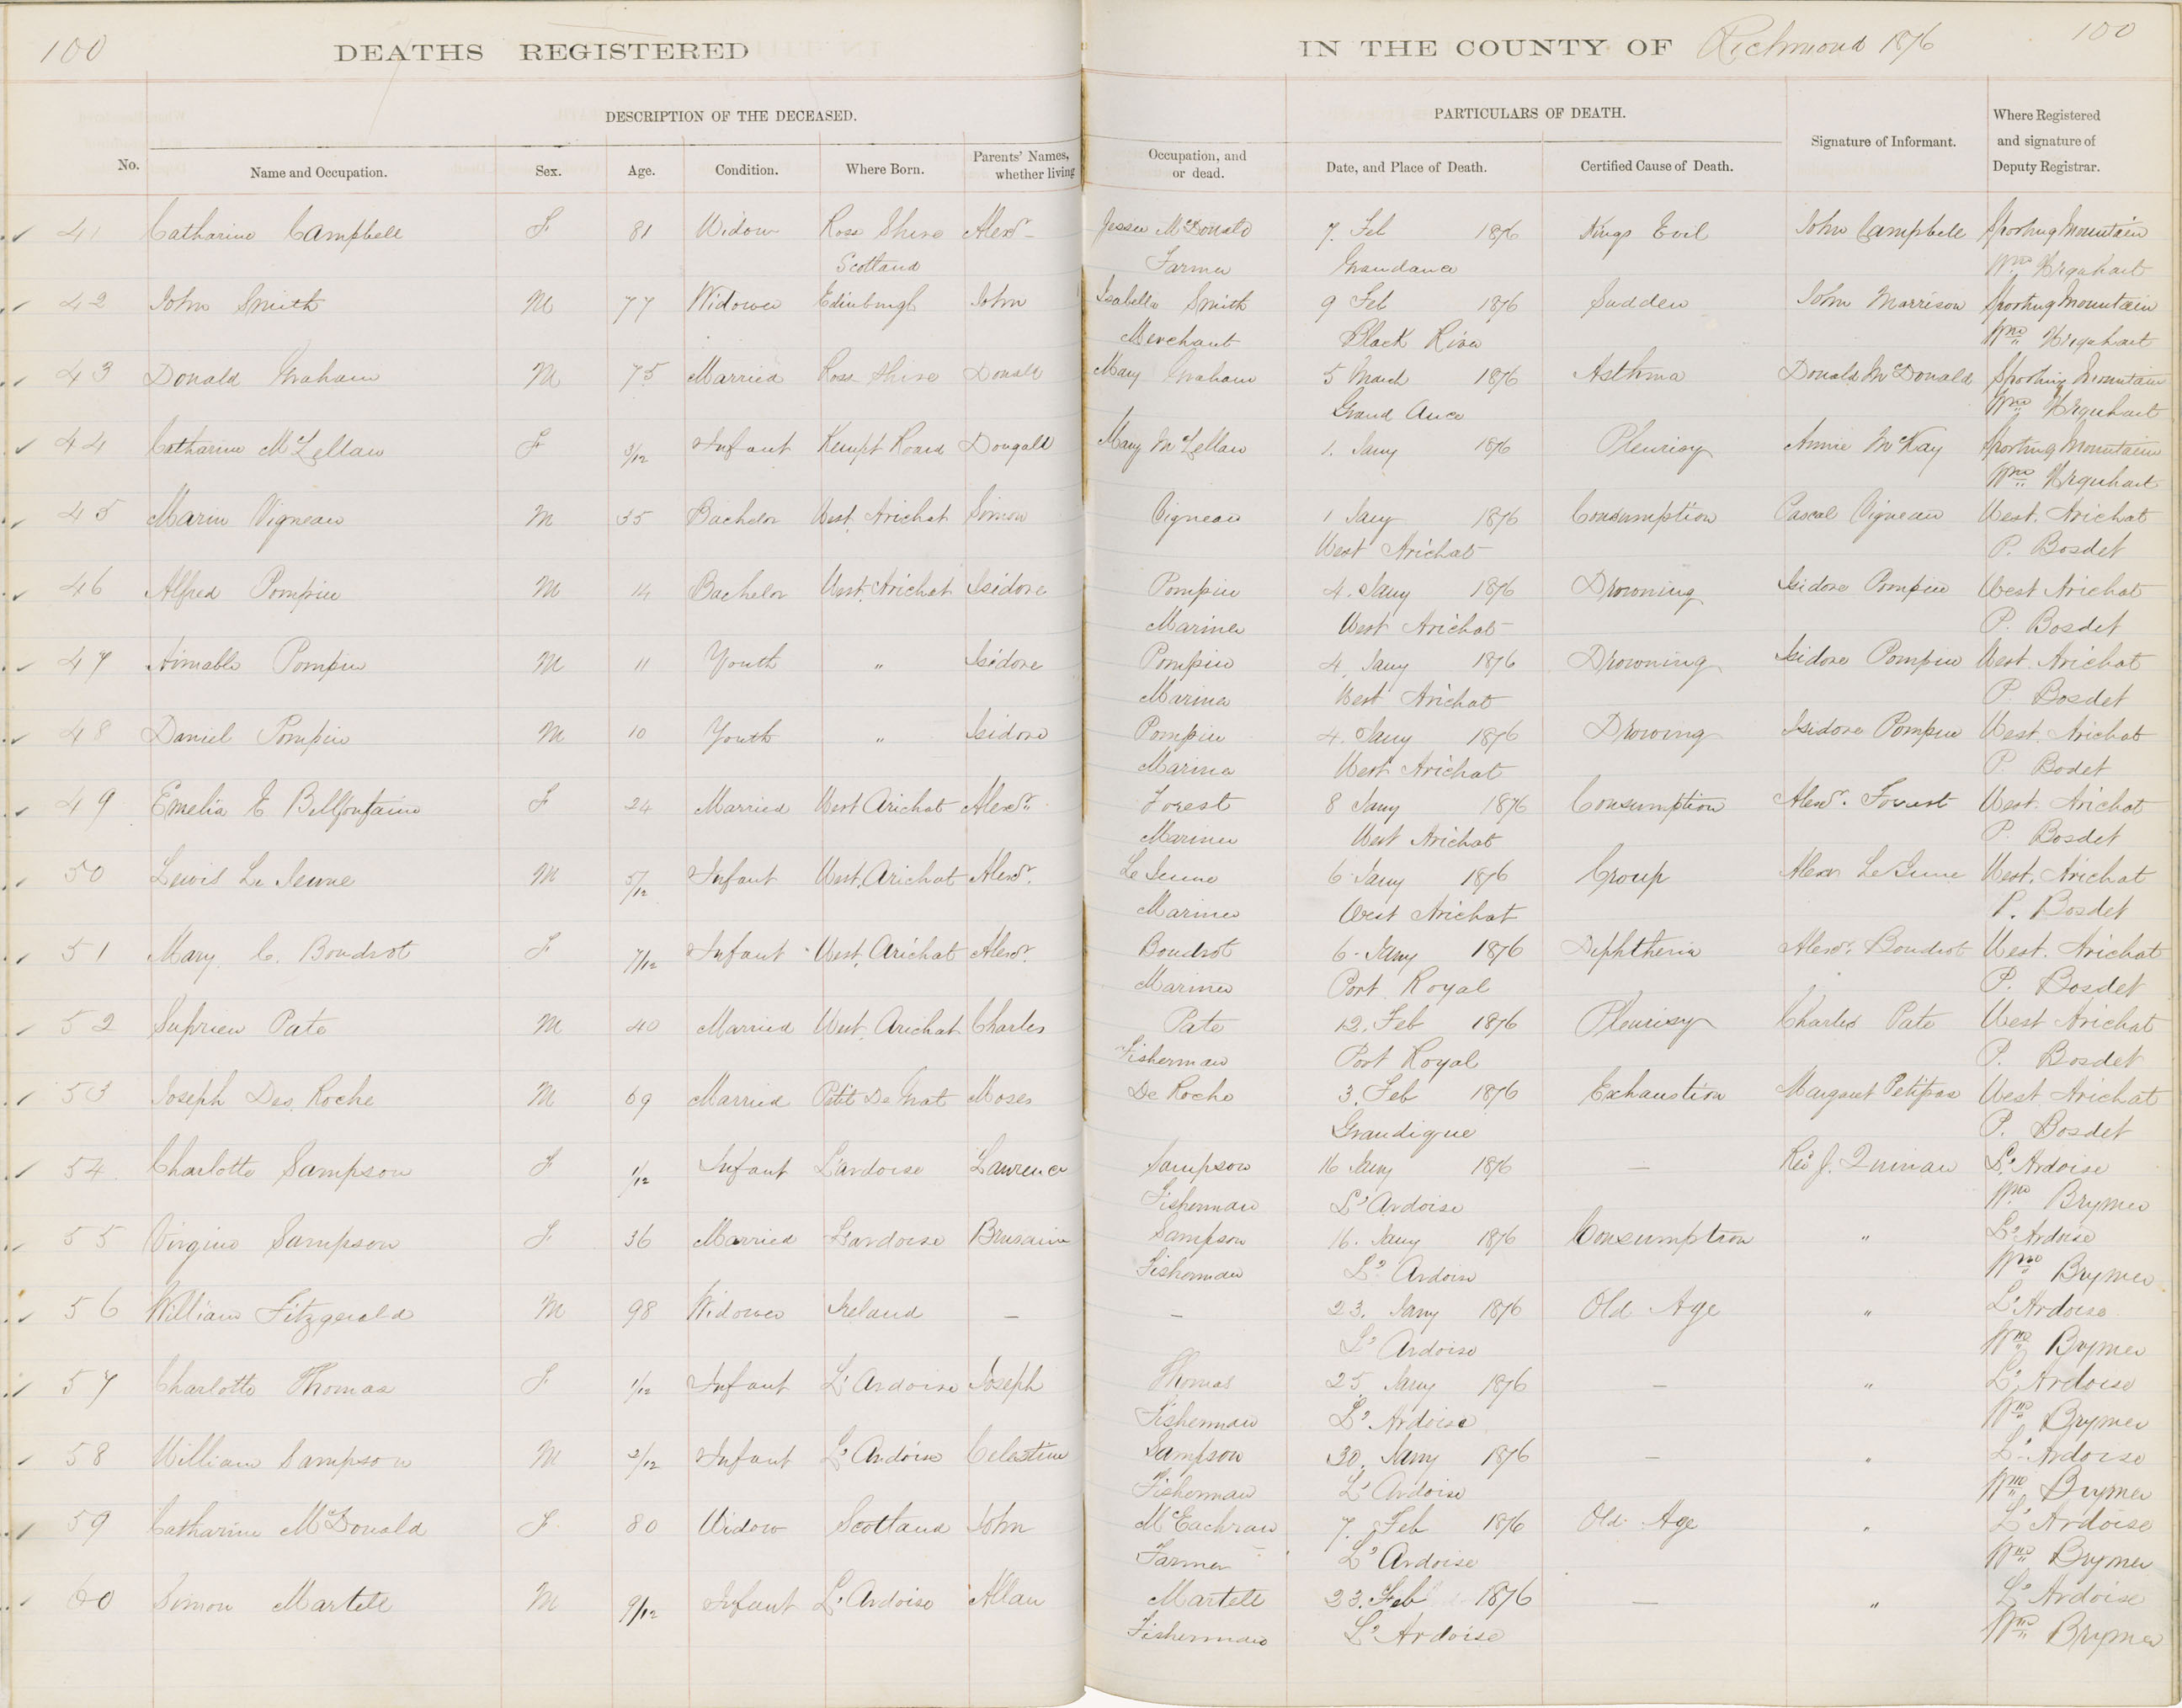 100 DEATHS REGISTERED IN THE COUNTY OF Richmond 1876 100
DESCRIPTION OF THE DECEASED. PARTICULARS OF DEATH.
No. Name and Occupation. Sex. Age. Condition. Where Born. Parents' Names, whether living Occupation, and or dead. Date, and Place of Death. Certified Cause of Death. Signature of Informant. Where Registered and signature of Deputy Registrar.
41 Catharine Campbell F 81 Widow Ross Shire Alexr Jessie McDonald 7. Feb 1876 Kings Evil John Campbell Sporting Mountain
Scotland Farmer Grandance Wm Urquhart
42 John Smith M 77 Widower Edinburgh John Isabella Smith 9 Feb 1876 Sudden John Morrison Sporting Mountain
Merchant Black River Wm Urquhart
43 Donald Graham M 75 Married Ross Shire Donald Mary Graham 5 March 1876 Asthma Donald McDonald Sporting Mountain
Grand Ance Wm Urquhart
44 Catharine McLellan F 3/12 Infant Kempt Road Dougald Mary McLellan 1. Jany 1876 Pleurisy Annie McKay Sporting Mountain
Wm Urquhart
45 Marin Vigneau M 35 Bachelor West Arichat Simon Vigneau 1 Jany 1876 Consumption Pascal Vigneau West. Arichat
West Arichat P. Bosdet
46 Alfred Pompin M 14 Bachelor West. Arichat Isidore Pompin 4. Jany 1876 Drowning Isidore Pompin West Arichat
Mariner West Arichat P. Bosdet
47 Aimable Pompin M 11 Youth " Isidore Pompin 4. Jany 1876 Drowning Isidore Pompin West. Arichat
Mariner West Arichat P. Bosdet
48 Daniel Pompin M 10 Youth " Isidore Pompin 4. Jany 1876 Drowing Isidore Pompin West. Arichat
Mariner West Arichat P. Bodet
49 Emelia E Bellfontaine F 24 Married West Arichat Alexr. Forest 8 Jany 1876 Consumption Alexr. Forest West. Arichat
Mariner West Arichat P. Bosdet
50 Lewis Le Jeune M 5/12 Infant West. Arichat Alexr. Le Jeune 6 Jany 1876 Croup Alexr LeJeune West. Arichat
Mariner West Arichat P. Bosdet
51 Mary C. Boudrot F 7/12 Infant West. Arichat Alexr. Boudrot 6. Jany 1876 Diphtheria Alexr. Boudrot West. Arichat
Mariner Port Royal P. Bosdet
52 Suprien Pate M 40 Married West. Arichat Charles Pate 12. Feb 1876 Pleurisy Charles Pate West Arichat
Fisherman Port Royal P. Bosdet
53 Joseph Des Roche M 69 Married Petit De Grat Moses De Roche 3. Feb 1876 Exhaustion Margaret Petipas West Arichat
Grandigue P. Bosdet
54. Charlotte Sampson F 1/12 Infant L'ardoise Lawrence Sampson 16 Jany 1876 — Rev J. Quinan L'Ardoise
Fisherman L'Ardoise Wm Brymer
55 Virginie Sampson F 36 Married L'ardoise Sampson 16. Jany 1876 Consumption " L'Ardoise
Fisherman L'Ardoise Wm Brymer
56 William Fitzgerald M 98 Widower Ireland — — 23. Jany 1876 Old Age " L'Ardoise
L'Ardoise Wm Brymer
57 Charlotte Thomas F 1/12 Infant L'Ardoise Joseph Thomas 25. Jany 1876 — " L'Ardoise
Fisherman L'Ardoise Wm Brymer
58 William Sampson M 2/12 Infant L'Ardoise Celestine Sampson 30. Jany 1876 — " L'Ardoise
Fisherman L'Ardoise Wm Brymer
59 Catharine McDonald F 80 Widow Scotland John McEachran 7. Feb 1876 Old Age " L'Ardoise
Farmer L'Ardoise Wm Brymer
60 Simon Martell M 9/12 Infant L'Ardoise Allan Martell 23. Feb 1876 — " L'Ardoise
Fisherman L'Ardoise Wm Brymer